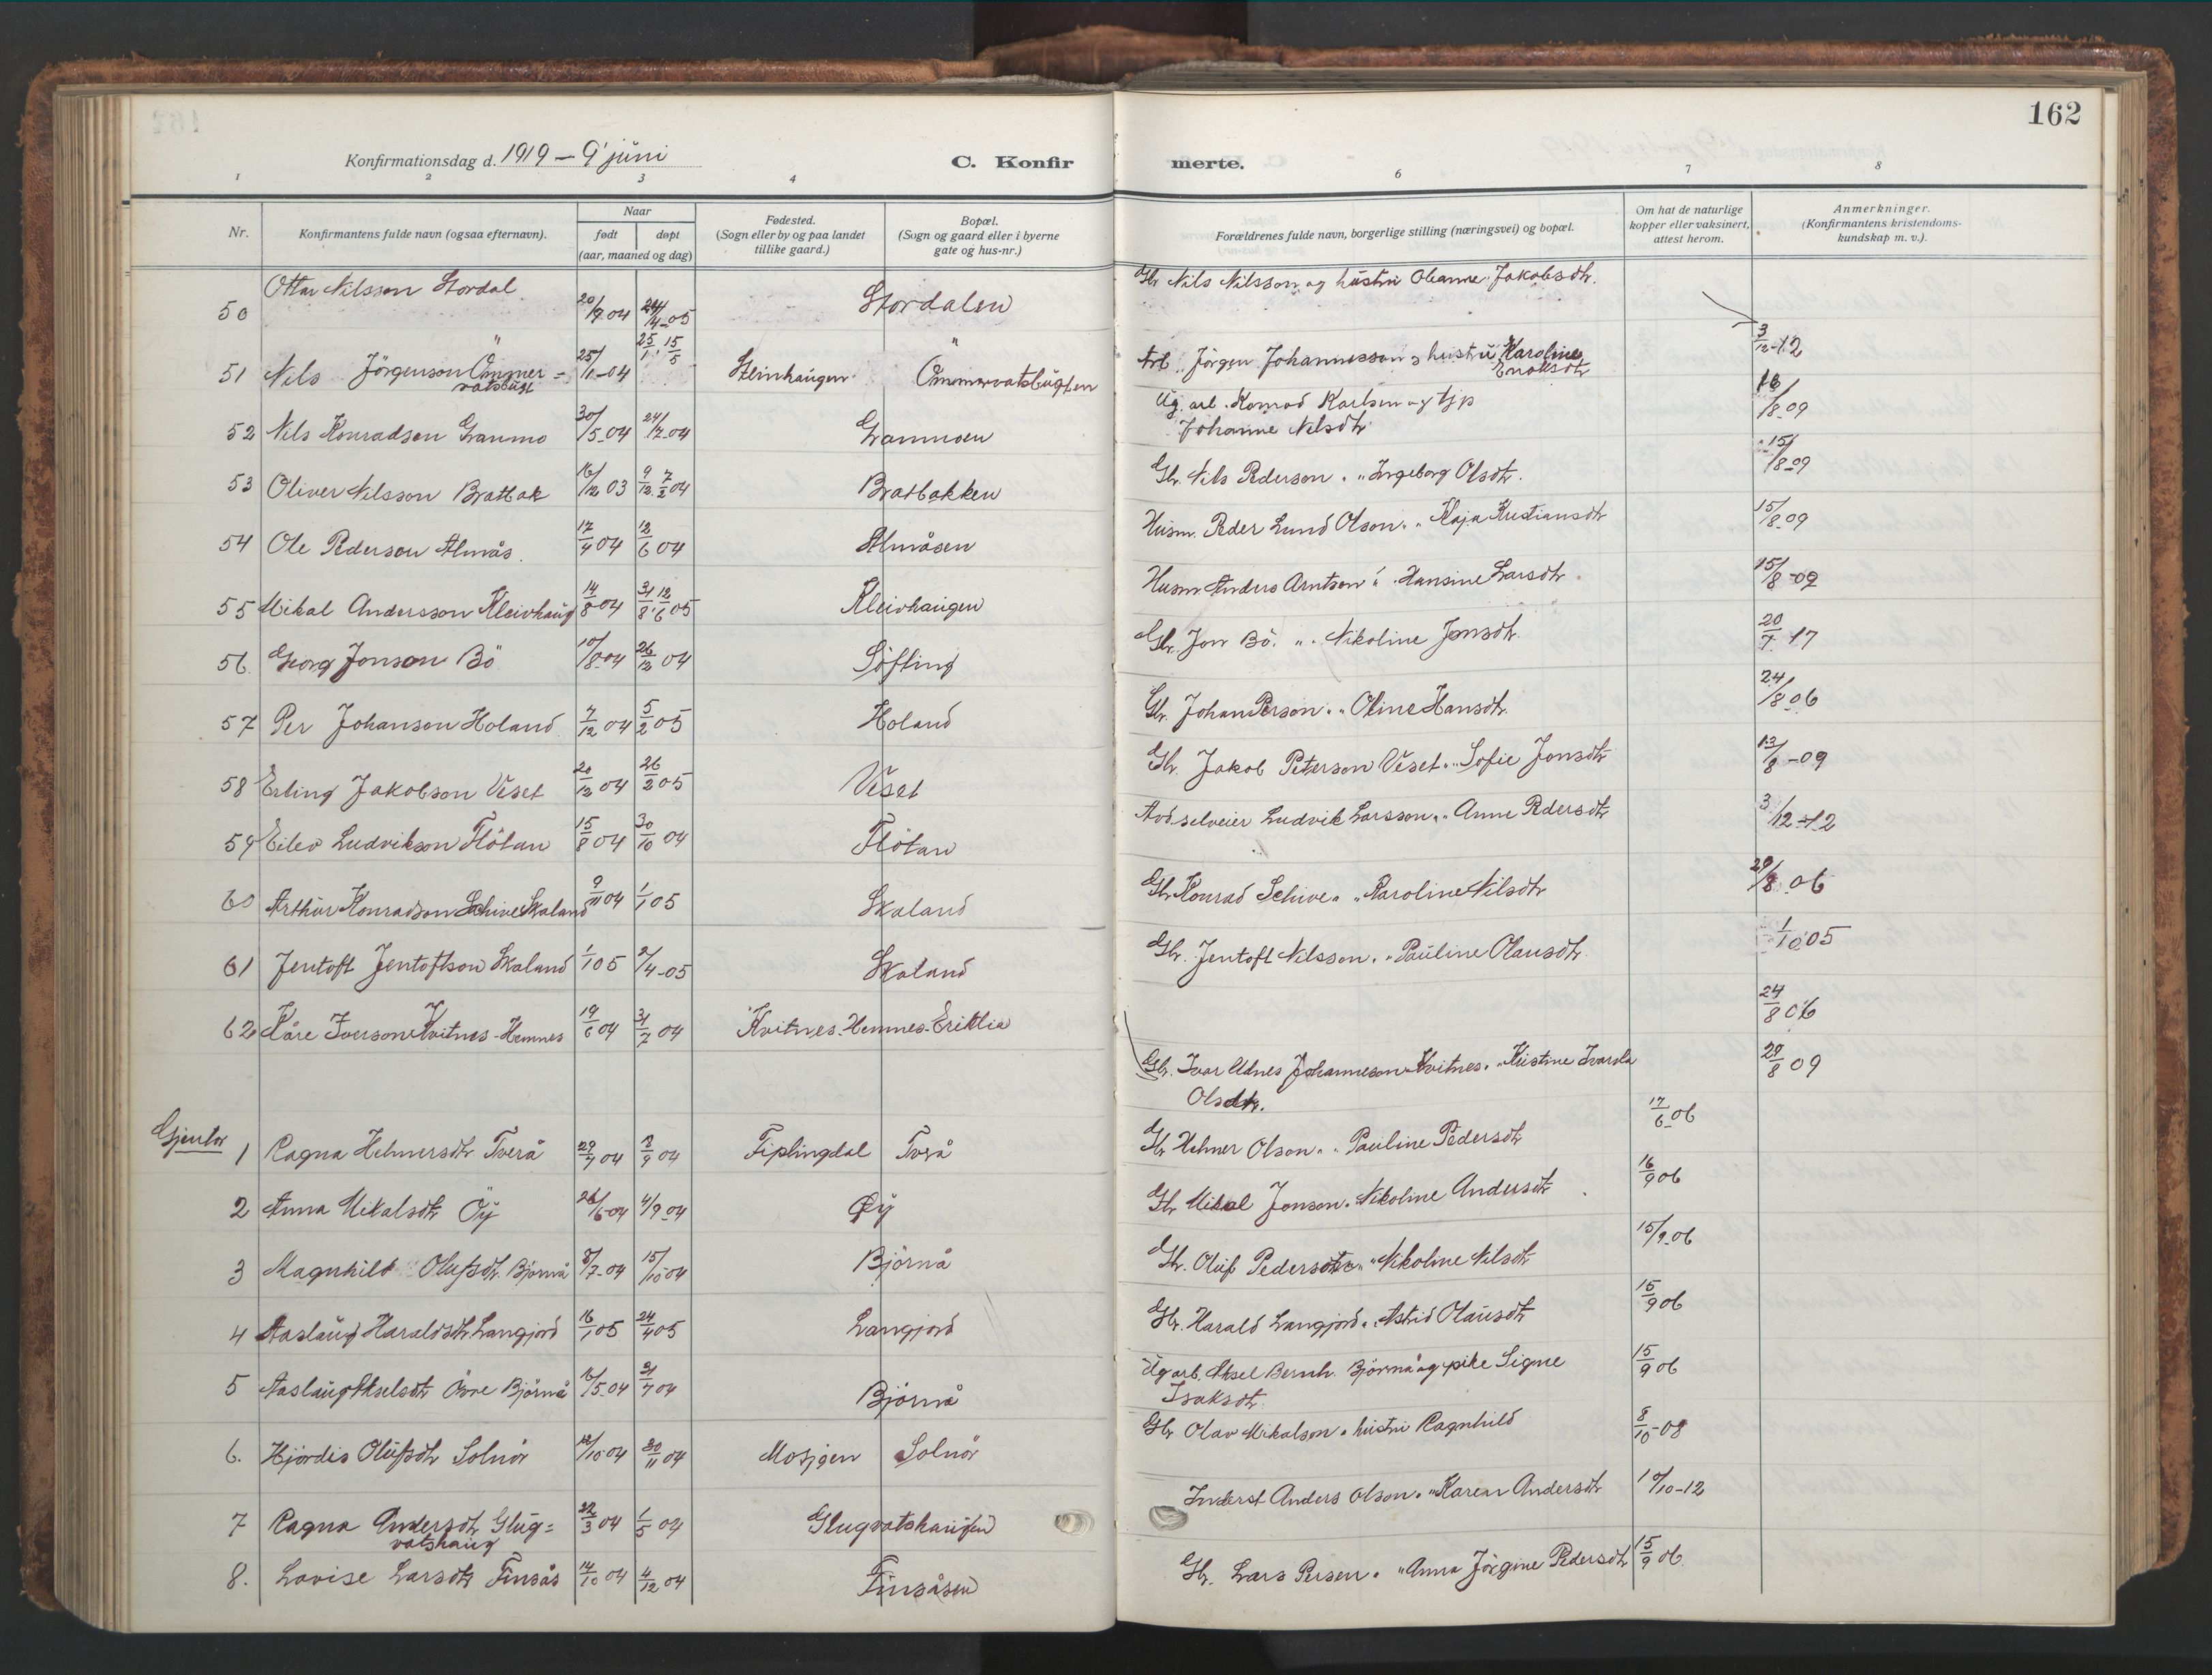 162
Konfirmationsdag d. 1919 – 9' juni
C. Konfirmerte.
1 2 3 4 6 7 8
Nr.
Konfirmantens fulde navn (ogsaa efternavn).
Naar
født døpt
(aar, maaned og dag)
Fødested.
(Sogn eller by og paa landet
tillike gaard.)
Bopæl.
(Sogn og gaard eller i byerne
gate og hus-nr.)
Forældrenes fulde navn, borgerlige stilling (næringsvei) og bopæl.
Om hat de naturlige
kopper eller vaksinert,
attest herom.
Anmerkninger.
(Konfirmantens kristendoms-
kundskap m. v.).
50 Ottar Nilsson Stordal 20/9 04 24/4-05 Stordalen Gbr Nils Nilsson og hustru Oleanne Jakobsdtr.
51 Nils Jörgenson Ömmer- 25/1-04 25/1 15/5 Steinhaugen Ömmervatsbugten Arb. Jörgen Johannesson og hustru Karoline 3/12-12
vatsbugt Enoksdtr
52 Nils Konradsen Granmo 30/5-04 24/7-04 Granmoen Ug. arb. Konrad Karlsen og tjp 18/8-09
Johanne Nilsdtr
53 Oliver Nilsson Bratbak 16/12 03 9/12 7/2 04 Bratbakken Gbr. Nils Pederson. " Ingeborg Olsdtr. 15/8-09
54 Ole Pederson Almås. 17/4 04 12/6 04 Almåsen Husm. Peder Lund Olson. " Kaja Kristiansdtr 15/8-09
55 Mikal Andersson Kleivhaug 14/8-04 31/8 12/6 05 Kleivhaugen Husm. Anders Arntson " Hansine Larsdtr. 15/8-09
56. Georg Jonson Bö 10/8-04 26/12 04 Söfting Gbr. Jon Bö. " Nikoline Jonsdtr. 20/7-17
57 Per Johanson Holand 7/12 04 5/2 05 Holand Gbr. Johan Person. " Oline Hansdtr. 24/8 06
58 Erling Jakobson Veset 20/12 04 26/2 05 Veset Gbr. Jakob Peterson Veset. " Sofie Jonsdtr 13/8-09
59 Eilev Ludvikson Flötan 15/8 04 30/10 04 Flötan Arb. selveier Ludvik Larsson. " Anne Pedersdtr 3/12-12
60 Arthur Konradson Schive Skaland 9/11 04 1/1 05 Skaland Gbr Konrad Schive. " Karoline Nilsdtr 29/8 06
61 Jentoft Jentoftson Skaland 1/1 05 2/4-05 Skaland Gbr. Jentoft Nilsson. " Pauline Olausdtr. 1/10 05
24/8 06
62 Kåre Iverson Kvitnes-Hemnes 19/6 04 31/7 04 Kvitnes-Hemnes-Eriklia
Gbr. Ivar Johanneson Kvitnes. " Kristine Ivarda 29/8 09
Olsdtr.
Gjenter
1 Ragna Helmersdtr Tverå 29/7 04 8/9 04 Fiplingdal Tverå Gbr Helmer Olson. " Pauline Pedersdtr 17/6-06
2 Anna Mikalsdtr Öy 26/6-04 4/9-04 Øy Gbr Mikal Jonson. Nikoline Andersdtr 16/9 06
3 Magnhild Olufsdtr. Bjørnå 8/7-04 15/10-04 Björnå Gbr. Oluf " Nikoline Nilsdtr 15/9-06
4 Aaslaug Haraldsdtr. Langjord 16/1 05 24/4 05 Langjord Gbr. Harald Langjord. " Astrid Olausdtr 15/9 06
5 Aaslaug Akselsdtr Övre Björnå 16/5-04 31/7 04 Björnå Ug arb. Aksel Bernh. Björnnå og pike Signe 15/9 06
Isaksdtr.
6. Hjördis Olufsdtr Solnör 12/10-04 30/11 04 Mosjøen Solnör Gbr Olav Mikalson. hustru Ragnhild 8/10-08
7 Ragna Andersdtr Glug= 22/3 04 1/5 04 Glugvatshaug(en) Inderst Anders Olson. " Karen Andersdtr 10/10-12
vatshaug
8. Lovise Larsdtr Finsås 14/10 04 4/12 04 Finsås(en) Gbr. Lars Persen. " Anna Jörgine Pedersdtr 15/9 06